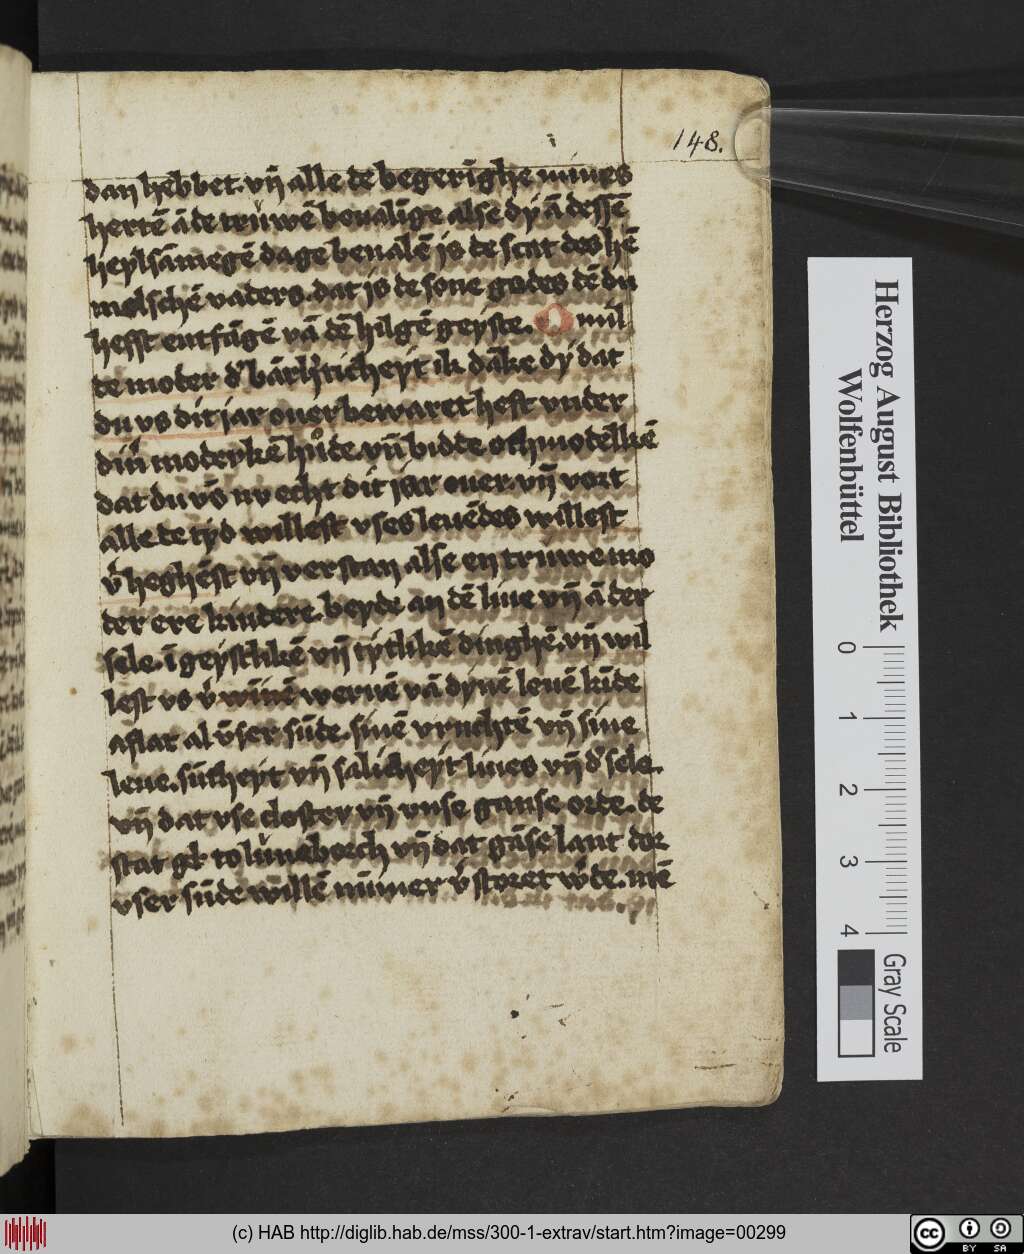 148.
dan hebbet. vn̄ alle de begerīghe mines
hertē ā de trůwē beualīge alse dy ā dessē
heylsāmegē dage beualē is de scat des hē
melschē vaders. dat is de sone godes dē du
hefst entfāgē vā dē hilgē geyste. O mil
de moder d' bārh'ticheyt ik dāke dy dat
du vs dit jar ouer bewaret hest vnder
din' moderkē hůde. vn̄ bidde othmodelkē
dat du vs nv echt dit jar ouer. vn̄ vort
alle de tyd willest vses leuēdes willest
v'heghēst vn̄ verstan alse en truwe mo
der ere kindere. beyde an dē liue vn̄ ā der
sele. ī geystlikē vn̄ tytlikē dinghē. vn̄ wil
lest vs v' weruē vā dynē leuē kīde
aflat al vser sūde. sinē vruchtē vn̄ sine
leue. sūtheyt vn̄ salicheyt liues vn̄ d' sele.
vn̄ dat vse closter vn̄ vnse ganse orde. de
stat to luneborch vn̄ dat gāse lant dor
vser sūde willē nūmer v'storet w'de. mē
Herzog August Bibliothek
Wolfenbüttel
0 1 2 3 4
Gray Scale
(c) HAB http://diglib.hab.de/mss/300-1-extrav/start.htm?image=00299
cc BY SA